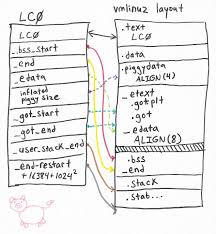 LC0
LC0
_bss_start
_end
_edata
inflated
piggy size
_got_start
_got_end
_user_stack_end
_end-restart
+16384+1024²
vmlinuz layout
.text
LC0
.data
.piggydata
ALIGN(4)
_etext
.got.plt
.got
_edata
ALIGN(8)
.bss
_end
.stack
.stab...